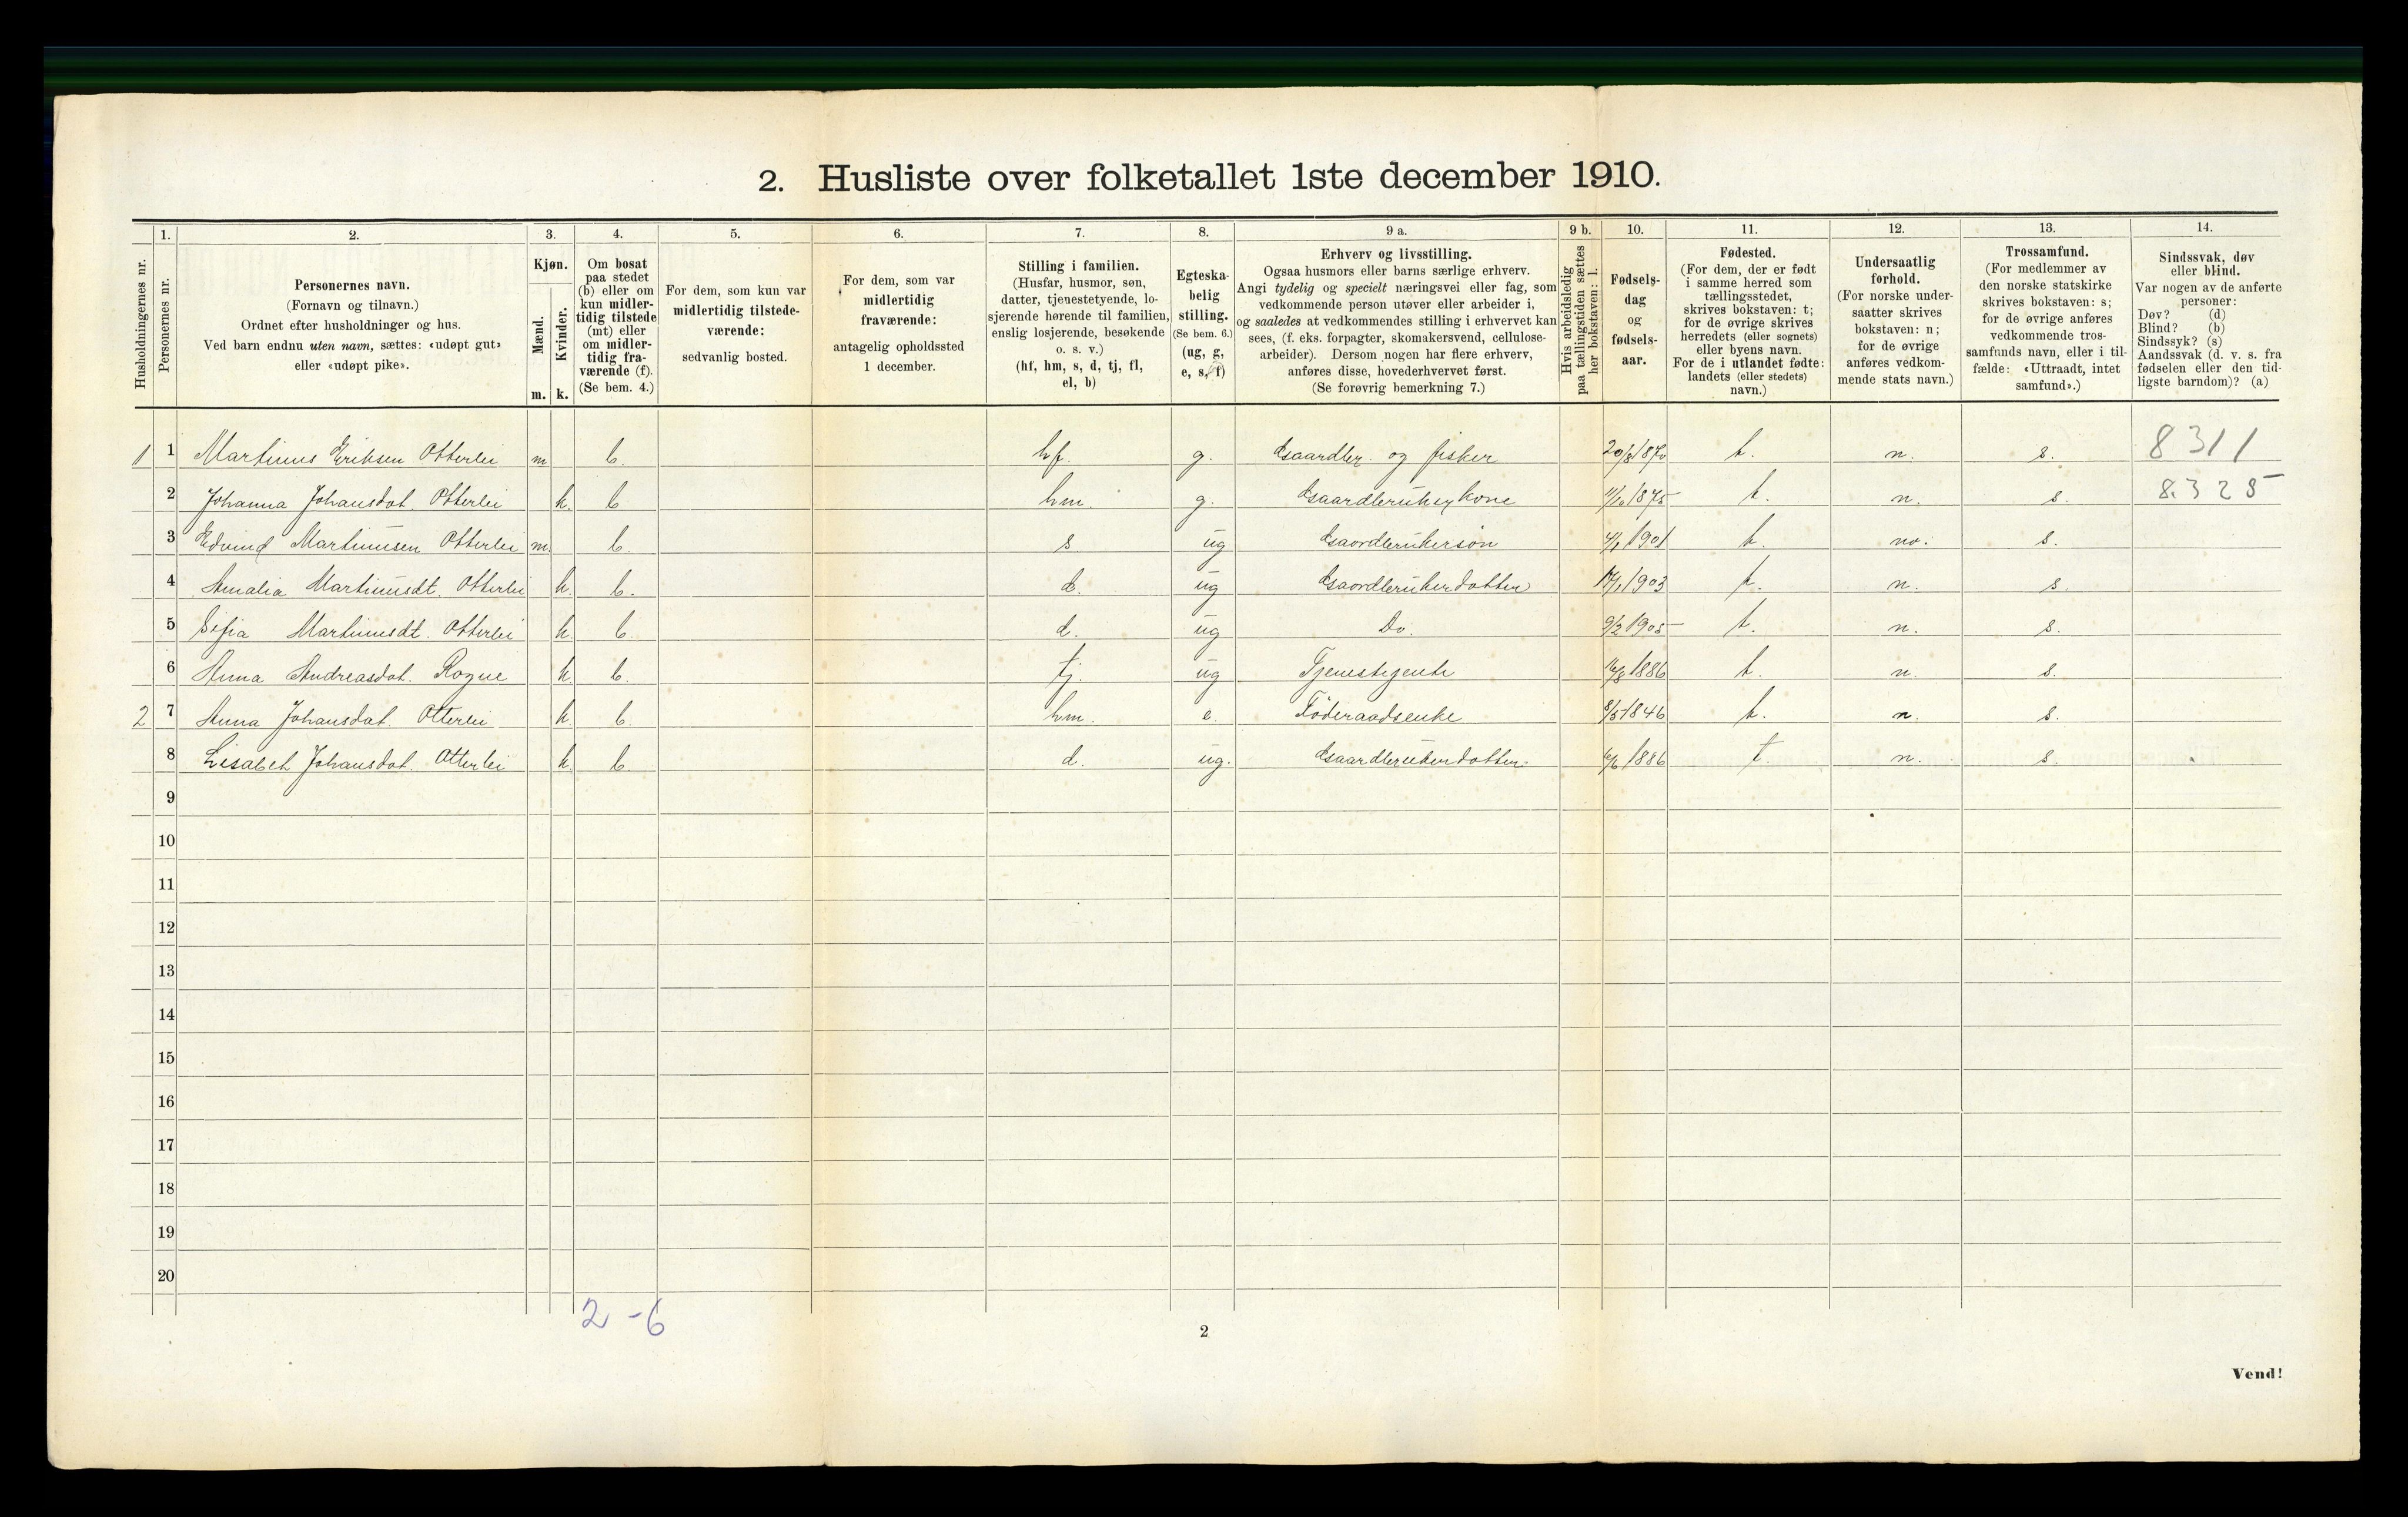 2. Husliste over folketallet 1ste december 1910.
Husholdningernes nr.
1. Personernes nr.
2. Personernes navn.
(Fornavn og tilnavn.)
Ordnet efter husholdninger og hus.
Ved barn endnu uten navn, sættes: «udøpt gut»
eller «udøpt pike».
3. Kjøn.
Mænd. m.
Kvinder. k.
4. Om bosat
paa stedet
(b) eller om
kun midler-
tidig tilstede
(mt) eller
om midler-
tidig fra-
værende (f).
(Se bem. 4.)
5. For dem, som kun var
midlertidig tilstede-
værende:
sedvanlig bosted.
6. For dem, som var
midlertidig
fraværende:
antagelig opholdssted
1 december.
7. Stilling i familien.
(Husfar, husmor, søn,
datter, tjenestetyende, lo-
sjerende hørende til familien,
enslig losjerende, besøkende
o. s. v.)
(hf, hm, s, d, tj, fl,
el, b)
8. Egteska-
belig
stilling.
(Se bem. 6.)
(ug, g,
e, s, f)
9 a. Erhverv og livsstilling.
Ogsaa husmors eller barns særlige erhverv.
Angi tydelig og specielt næringsvei eller fag, som
vedkommende person utøver eller arbeider i,
og saaledes at vedkommendes stilling i erhvervet kan
sees, (f. eks. forpagter, skomakersvend, cellulose-
arbeider). Dersom nogen har flere erhverv,
anføres disse, hovederhvervet først.
(Se forøvrig bemerkning 7.)
9 b. Hvis arbeidsledig
paa tællingstiden sættes
her bokstaven: l.
10. Fødsels-
dag
og
fødsels-
aar.
11. Fødested.
(For dem, der er født
i samme herred som
tællingsstedet,
skrives bokstaven: t;
for de øvrige skrives
herredets (eller sognets)
eller byens navn.
For de i utlandet fødte:
landets (eller stedets)
navn.)
12. Undersaatlig
forhold.
(For norske under-
saatter skrives
bokstaven: n;
for de øvrige
anføres vedkom-
mende stats navn.)
13. Trossamfund.
(For medlemmer av
den norske statskirke
skrives bokstaven: s;
for de øvrige anføres
vedkommende tros-
samfunds navn, eller i til-
fælde: «Uttraadt, intet
samfund».)
14. Sindssvak, døv
eller blind.
Var nogen av de anførte
personer:
Døv? (d)
Blind? (b)
Sindssyk? (s)
Aandssvak (d. v. s. fra
fødselen eller den tid-
ligste barndom)? (a)
1 1 Martinus Eriksen Otterlei m b. hf. g. Gaardbr. og fisker 20/8 1870 t. n. s. 8311
2 Johanna Johansdot. Otterlei k. b hm. g. 11/10 1875 t. n. s. 8325
3 Edvind Martinusen Otterlei m. b. s. ug Gaardbrukersøn 4/1 1901 t. no. s.
4 Amalia Martinusdt. Otterlei k. b. d. ug Gaardbrukerdotter 1903 t. n. s.
5 Sifia Martinusdt. Otterlei k. b. d. ug Do. 9/2 1905 t. n. s.
6 Anna Andreasdot. Rogne k. b. tj. ug Tjenestejente 16/8 1886 t. n. s.
2 7 Anna Johansdat. Otterlei k. b. hm. e. Föderaadsenke 8/5 1846 t. n. s.
8 Lisabet Johansdot. Otterlei k. b. d. ug. Gaardbrukerdotter. 6/6 1886 t. n. s.
9
10
11
12
13
14
15
16
17
18
19
20
2 - 6
2
Vend!